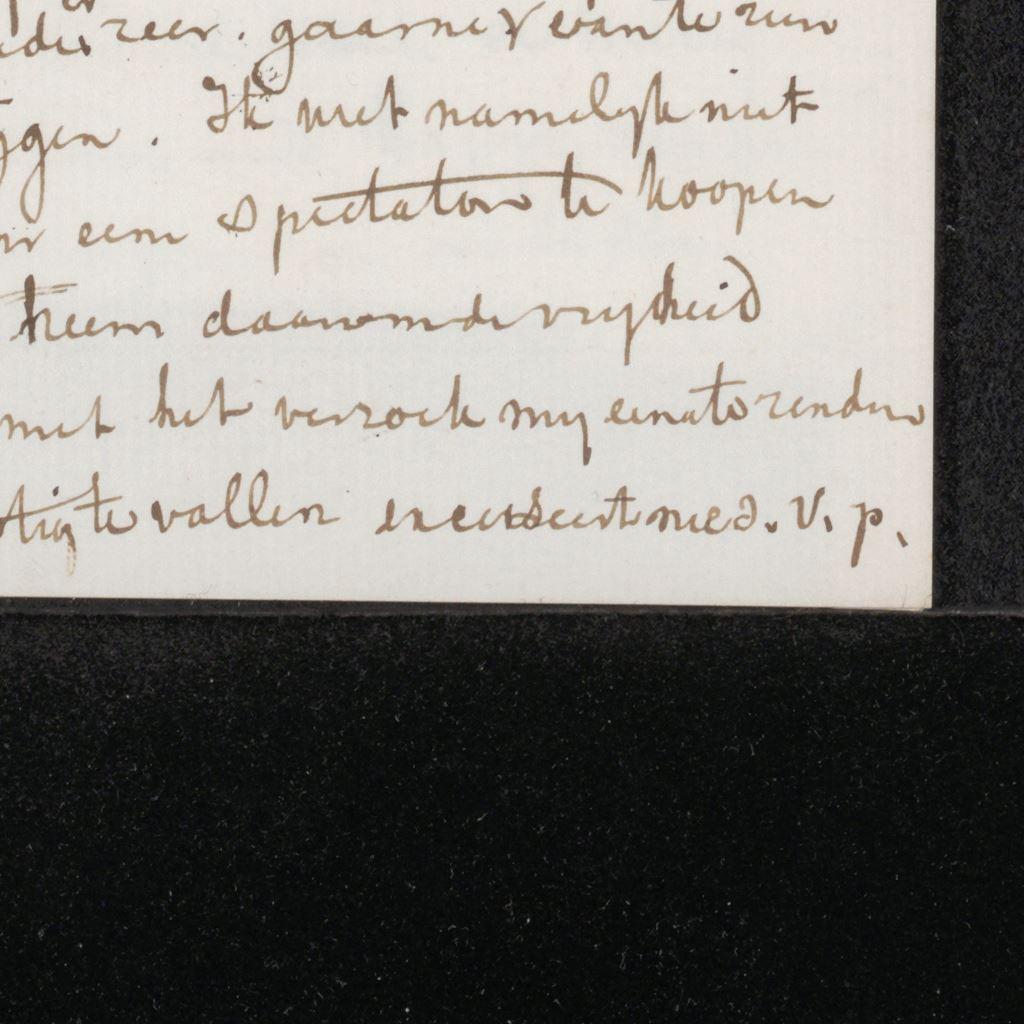 zeer. gaarne er van te zien
gen. Ik weet namelyk niet
een Spectator te koopen
neem daarom de vryheid
met het verzoek my eenate zenden
tig te vallen en eerst med. V. p.